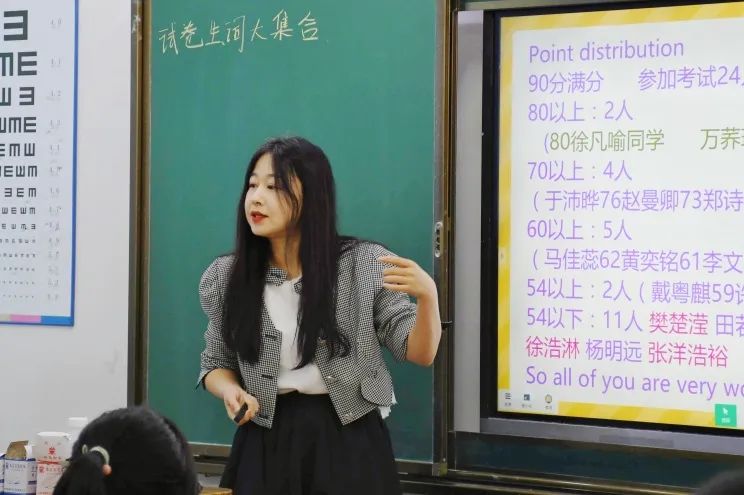 试卷生词大集合
Point distribution
90分满分 参加考试24人
80以上：2人
(80徐凡喻同学 万荞
70以上：4人
（于沛晔76赵曼卿73郑诗
60以上：5人
（马佳蕊62黄奕铭61李文
54以上：2人（戴粤麒59许
54以下：11人 樊楚滢 田若
徐浩淋 杨明远 张洋浩裕
So all of you are very wo